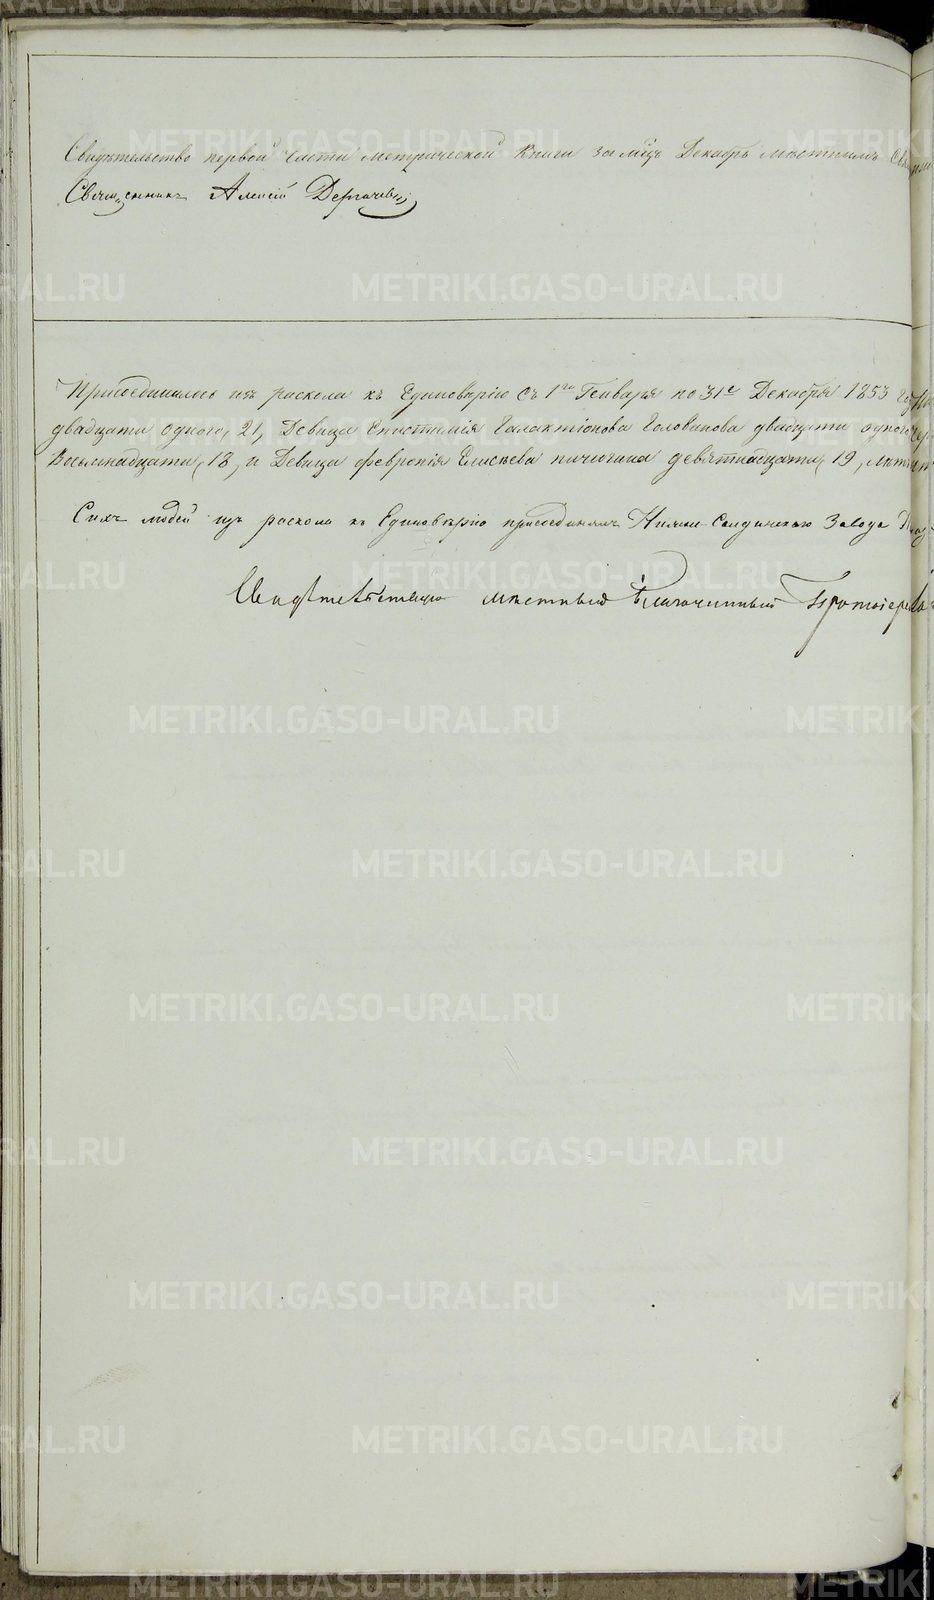 Свидѣтельство первой части метрической книги за мцъ Декабрь мѣстнымъ
Священникъ Алексій Дергачевъ
Присоединилось изъ раскола къ Единовѣрію съ 1го Генваря по 31е Декабря 1853
двадцати одного, 21, Девица Епистимія Галактіонова Голованова двадцати одного
восьмнадцати, 18, и Девица Февронія Елисѣева девятнадцати, 19, лѣтъ
Сихъ людей изъ раскола къ Единовѣрію присоединялъ Нижне-Салдинскаго Завода
Свидѣтельствую мѣстный Благочинный Протоіерей
METRIKI.GASO-URAL.RU